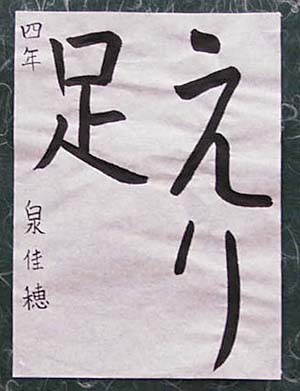 えり
足
四年 泉佳穂